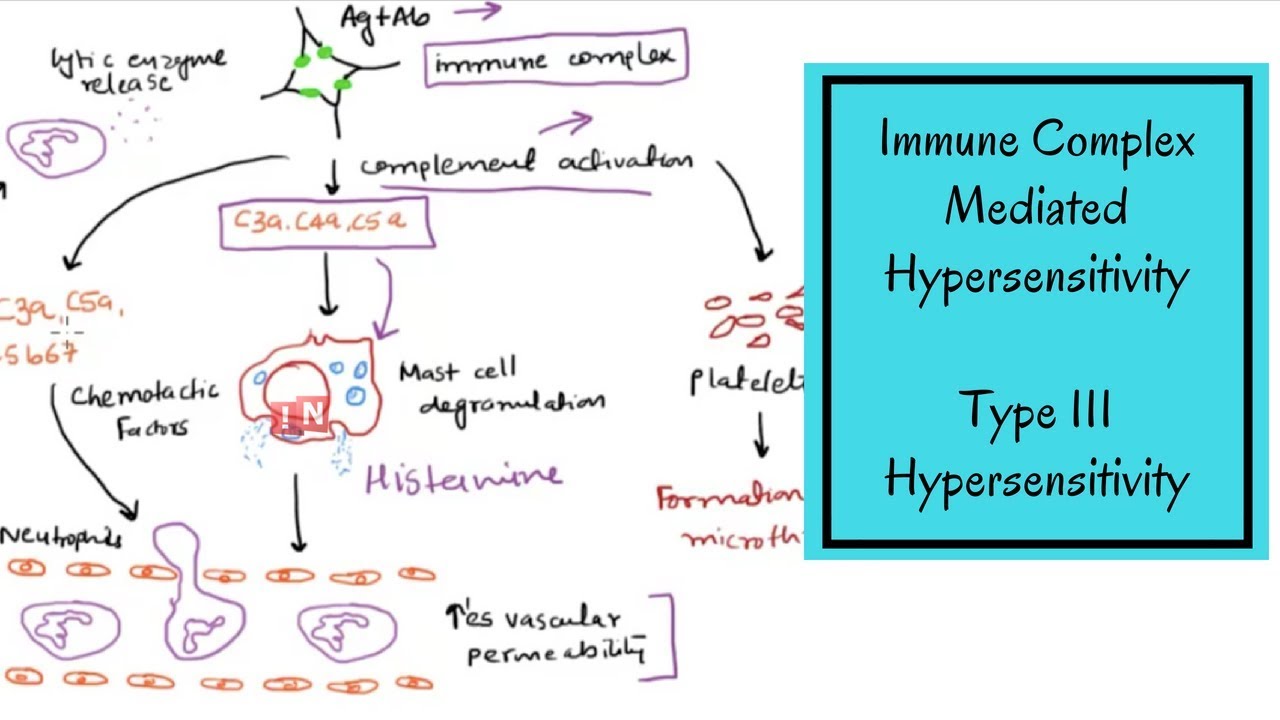 Ag+Ab
immune complex
lytic enzyme
release
complement activation
C3a. C4a, C5a
C3a, C5a,
5b67
Chemotactic
Factors
Mast cell
degranulation
!N
Histamine
Platelet
Formation
microth
Neutrophils
↑es vascular
permeability
Immune Complex
Mediated
Hypersensitivity
Type III
Hypersensitivity